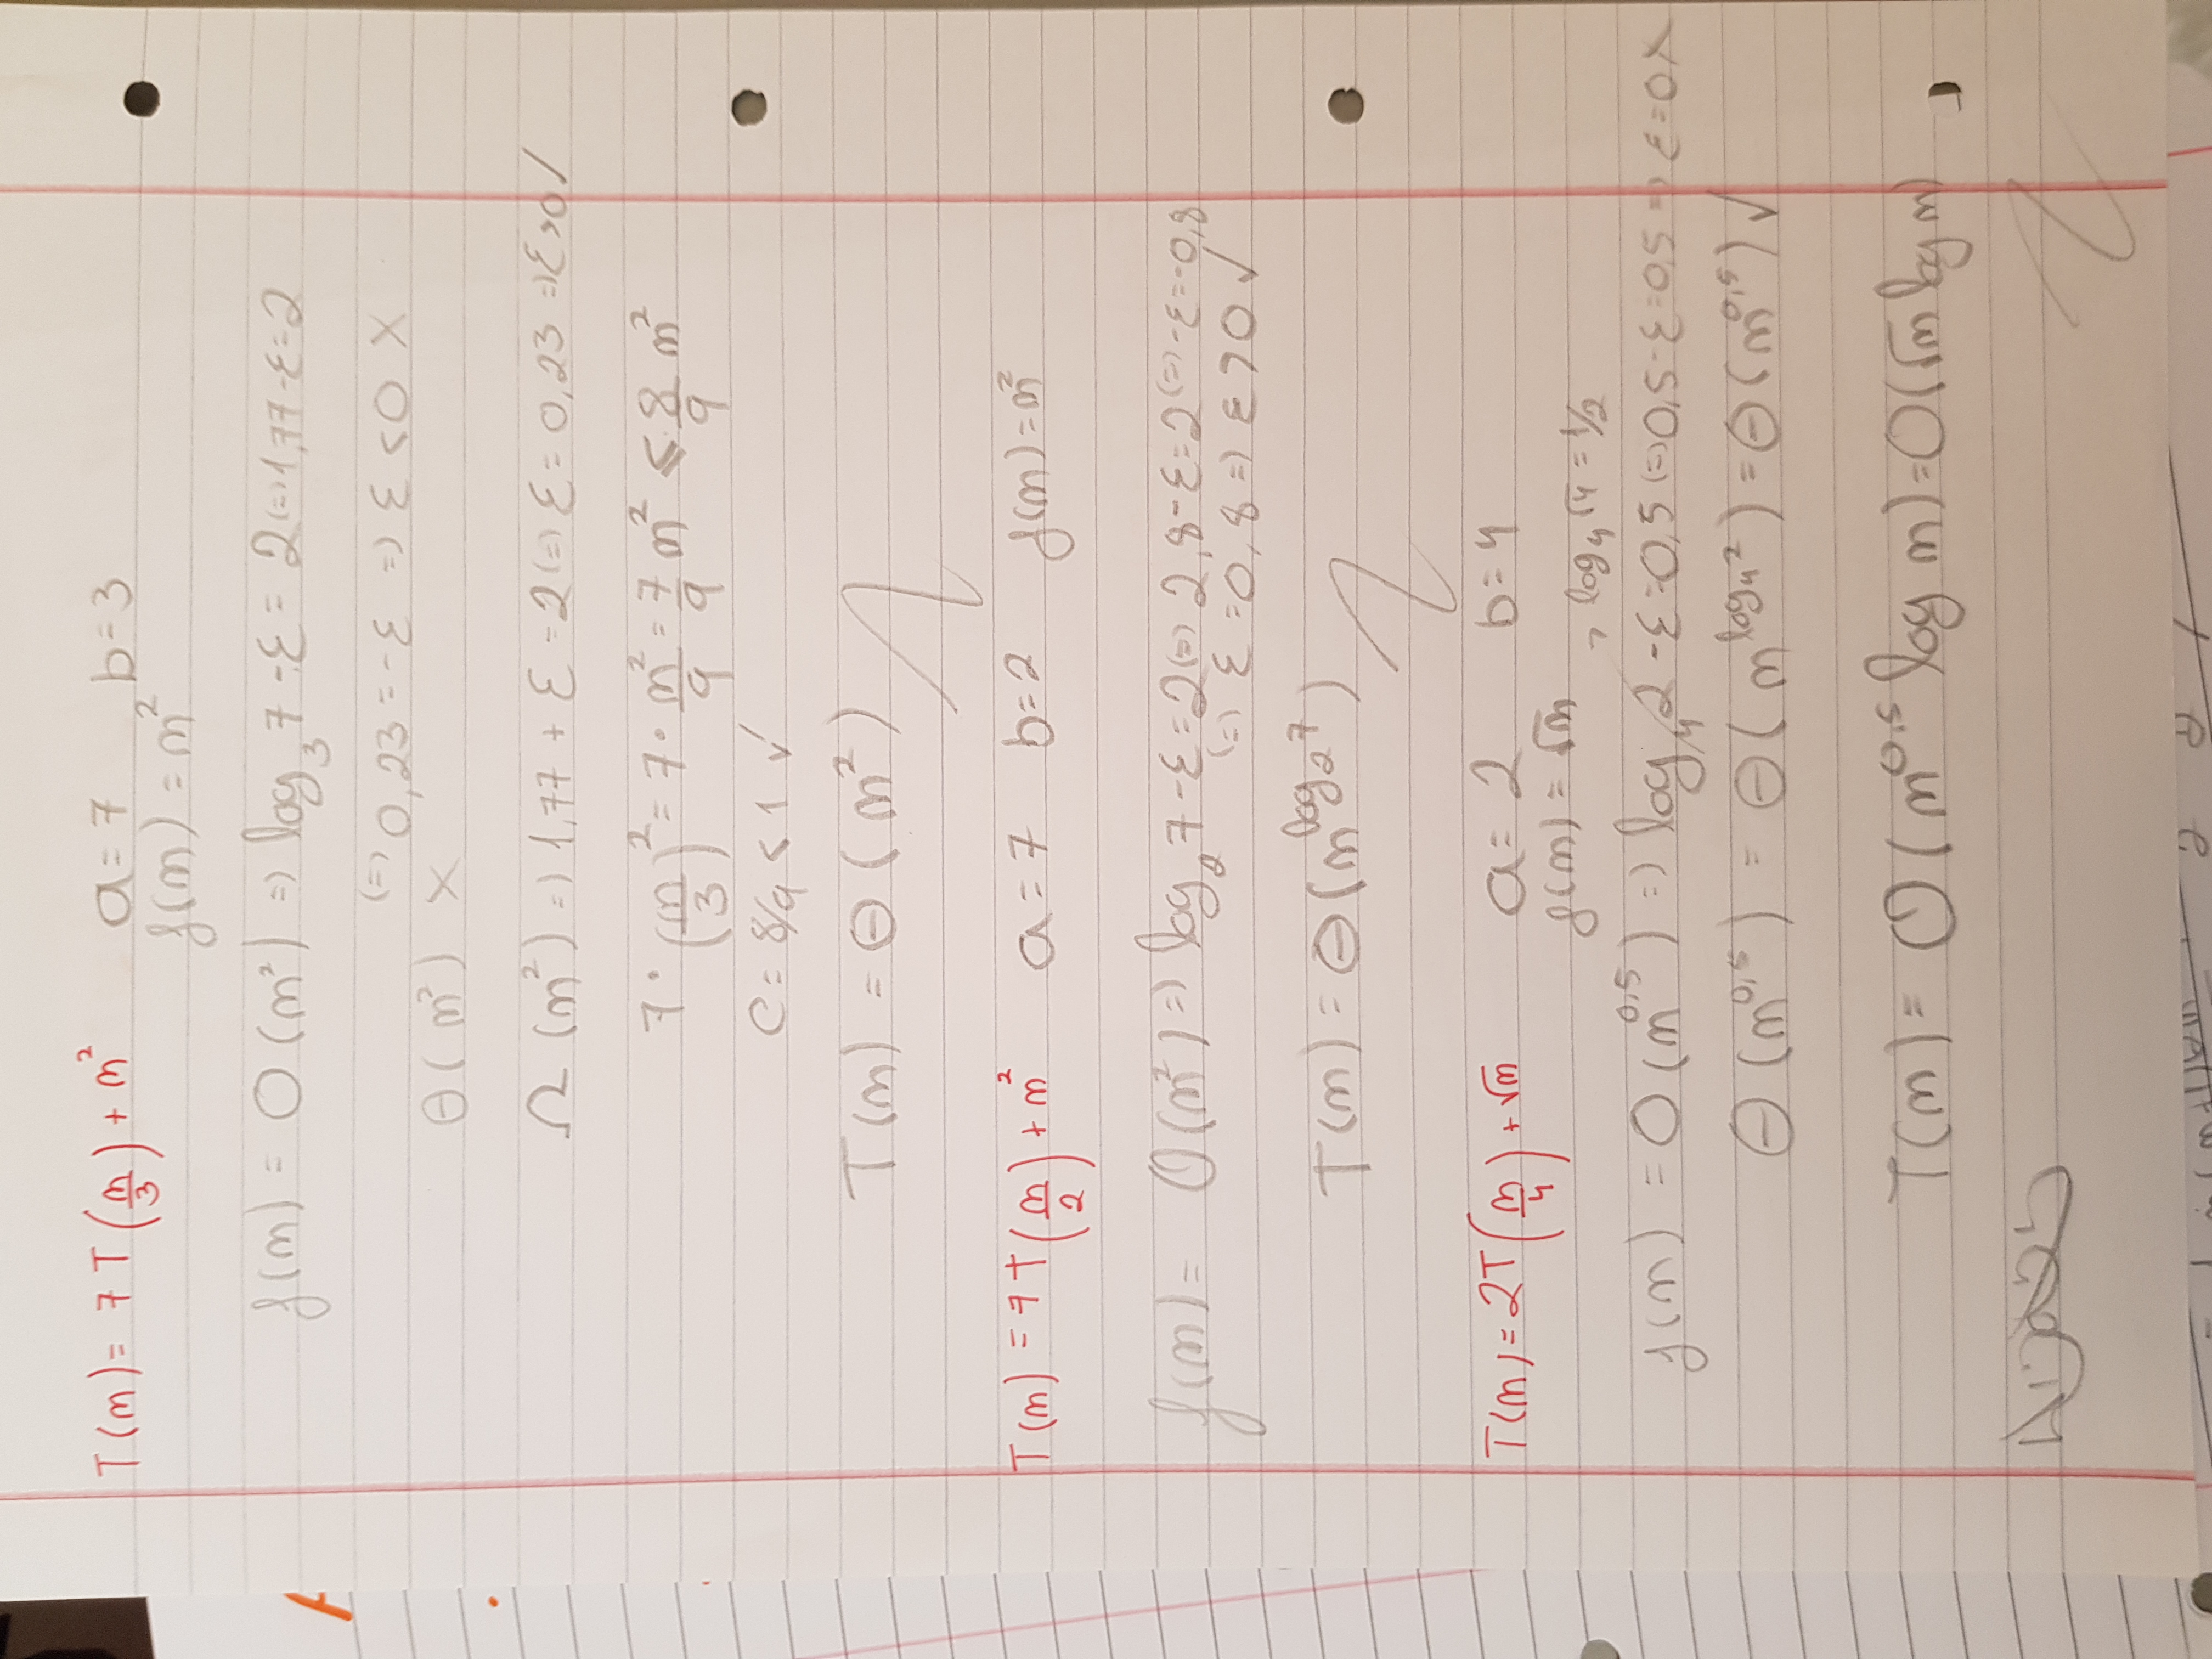 T(n) = 7T(n/3) + n² a = 7 b = 3
f(n) = n²
f(n) = O(n²) => log₃7 - ε = 2 (=) 1,77 - ε = 2
(=) 0,23 = -ε => ε < 0 X
Θ(n²) X
Ω(n²) => 1,77 + ε = 2 (=) ε = 0,23 => ε > 0 ✓
7 · (n/3)² = 7 · n²/9 = 7/9 n² ≤ 8/9 n²
C = 8/9 < 1 ✓
T(n) = Θ(n²)
T(n) = 7T(n/2) + n² a = 7 b = 2 f(n) = n²
f(n) = O(n²) => log₂7 - ε = 2 (=) 2,8 - ε = 2 (=) -ε = -0,8
(=) ε = 0,8 => ε > 0 ✓
T(n) = Θ(n^log₂7)
T(n) = 2T(n/4) + √n a = 2 b = 4
f(n) = √n
→ log₄√4 = 1/2
f(n) = O(n^0,5) => log₄2 - ε = 0,5 (=) 0,5 - ε = 0,5 => ε = 0 X
Θ(n^0,5) = Θ(n^log₄2) = Θ(n^0,5) ✓
T(n) = Θ(n^0,5 log n) = O(√n log n)